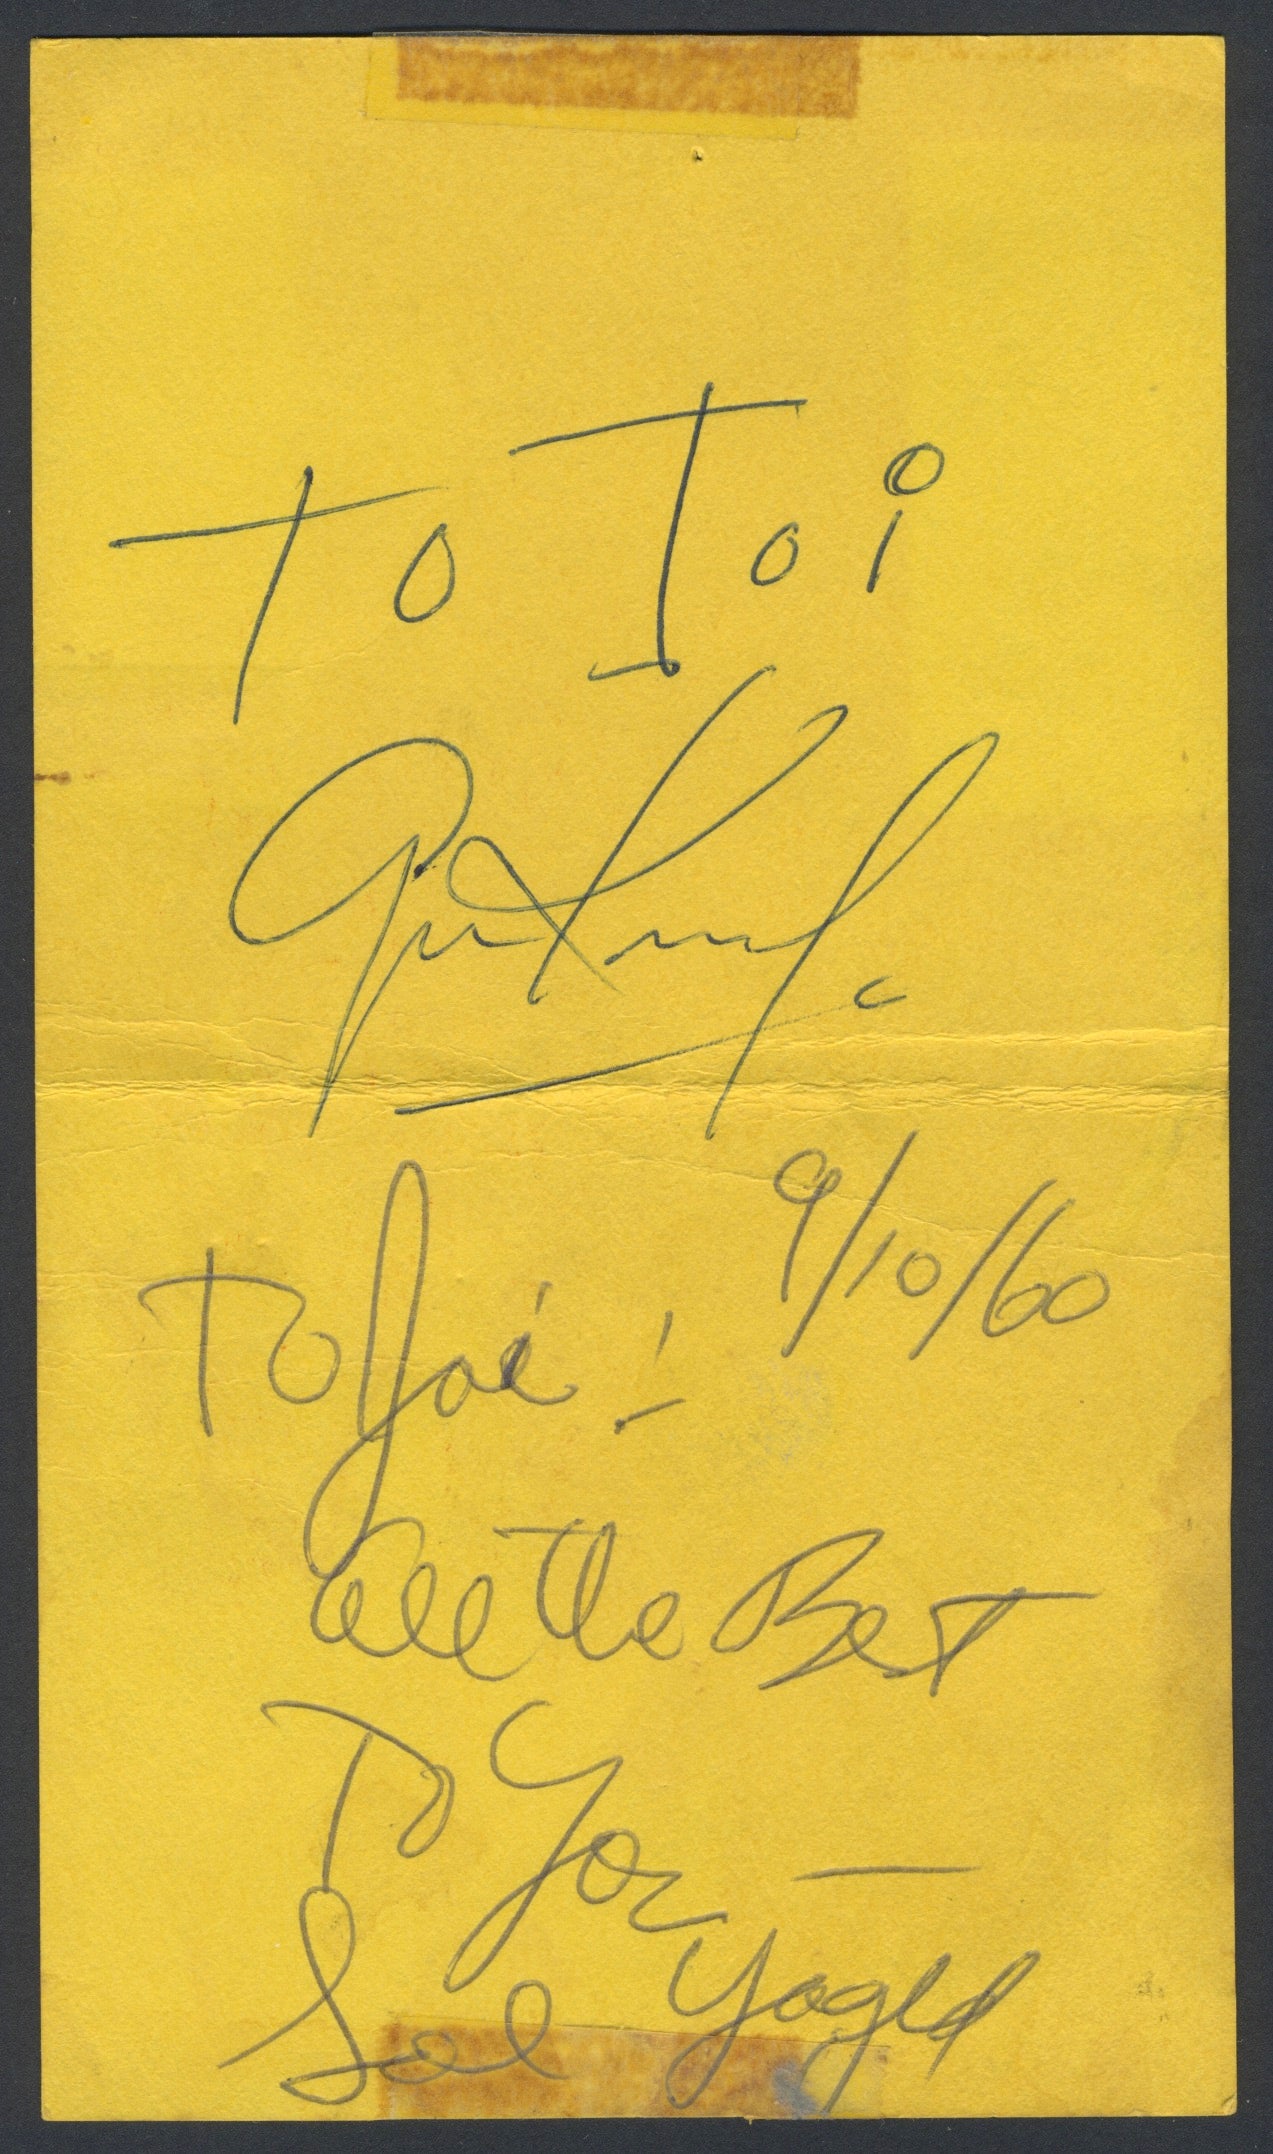 To Toi
Gene Krupa
9/10/60
To Joi!
All the Best
To You —
Sol Yaged